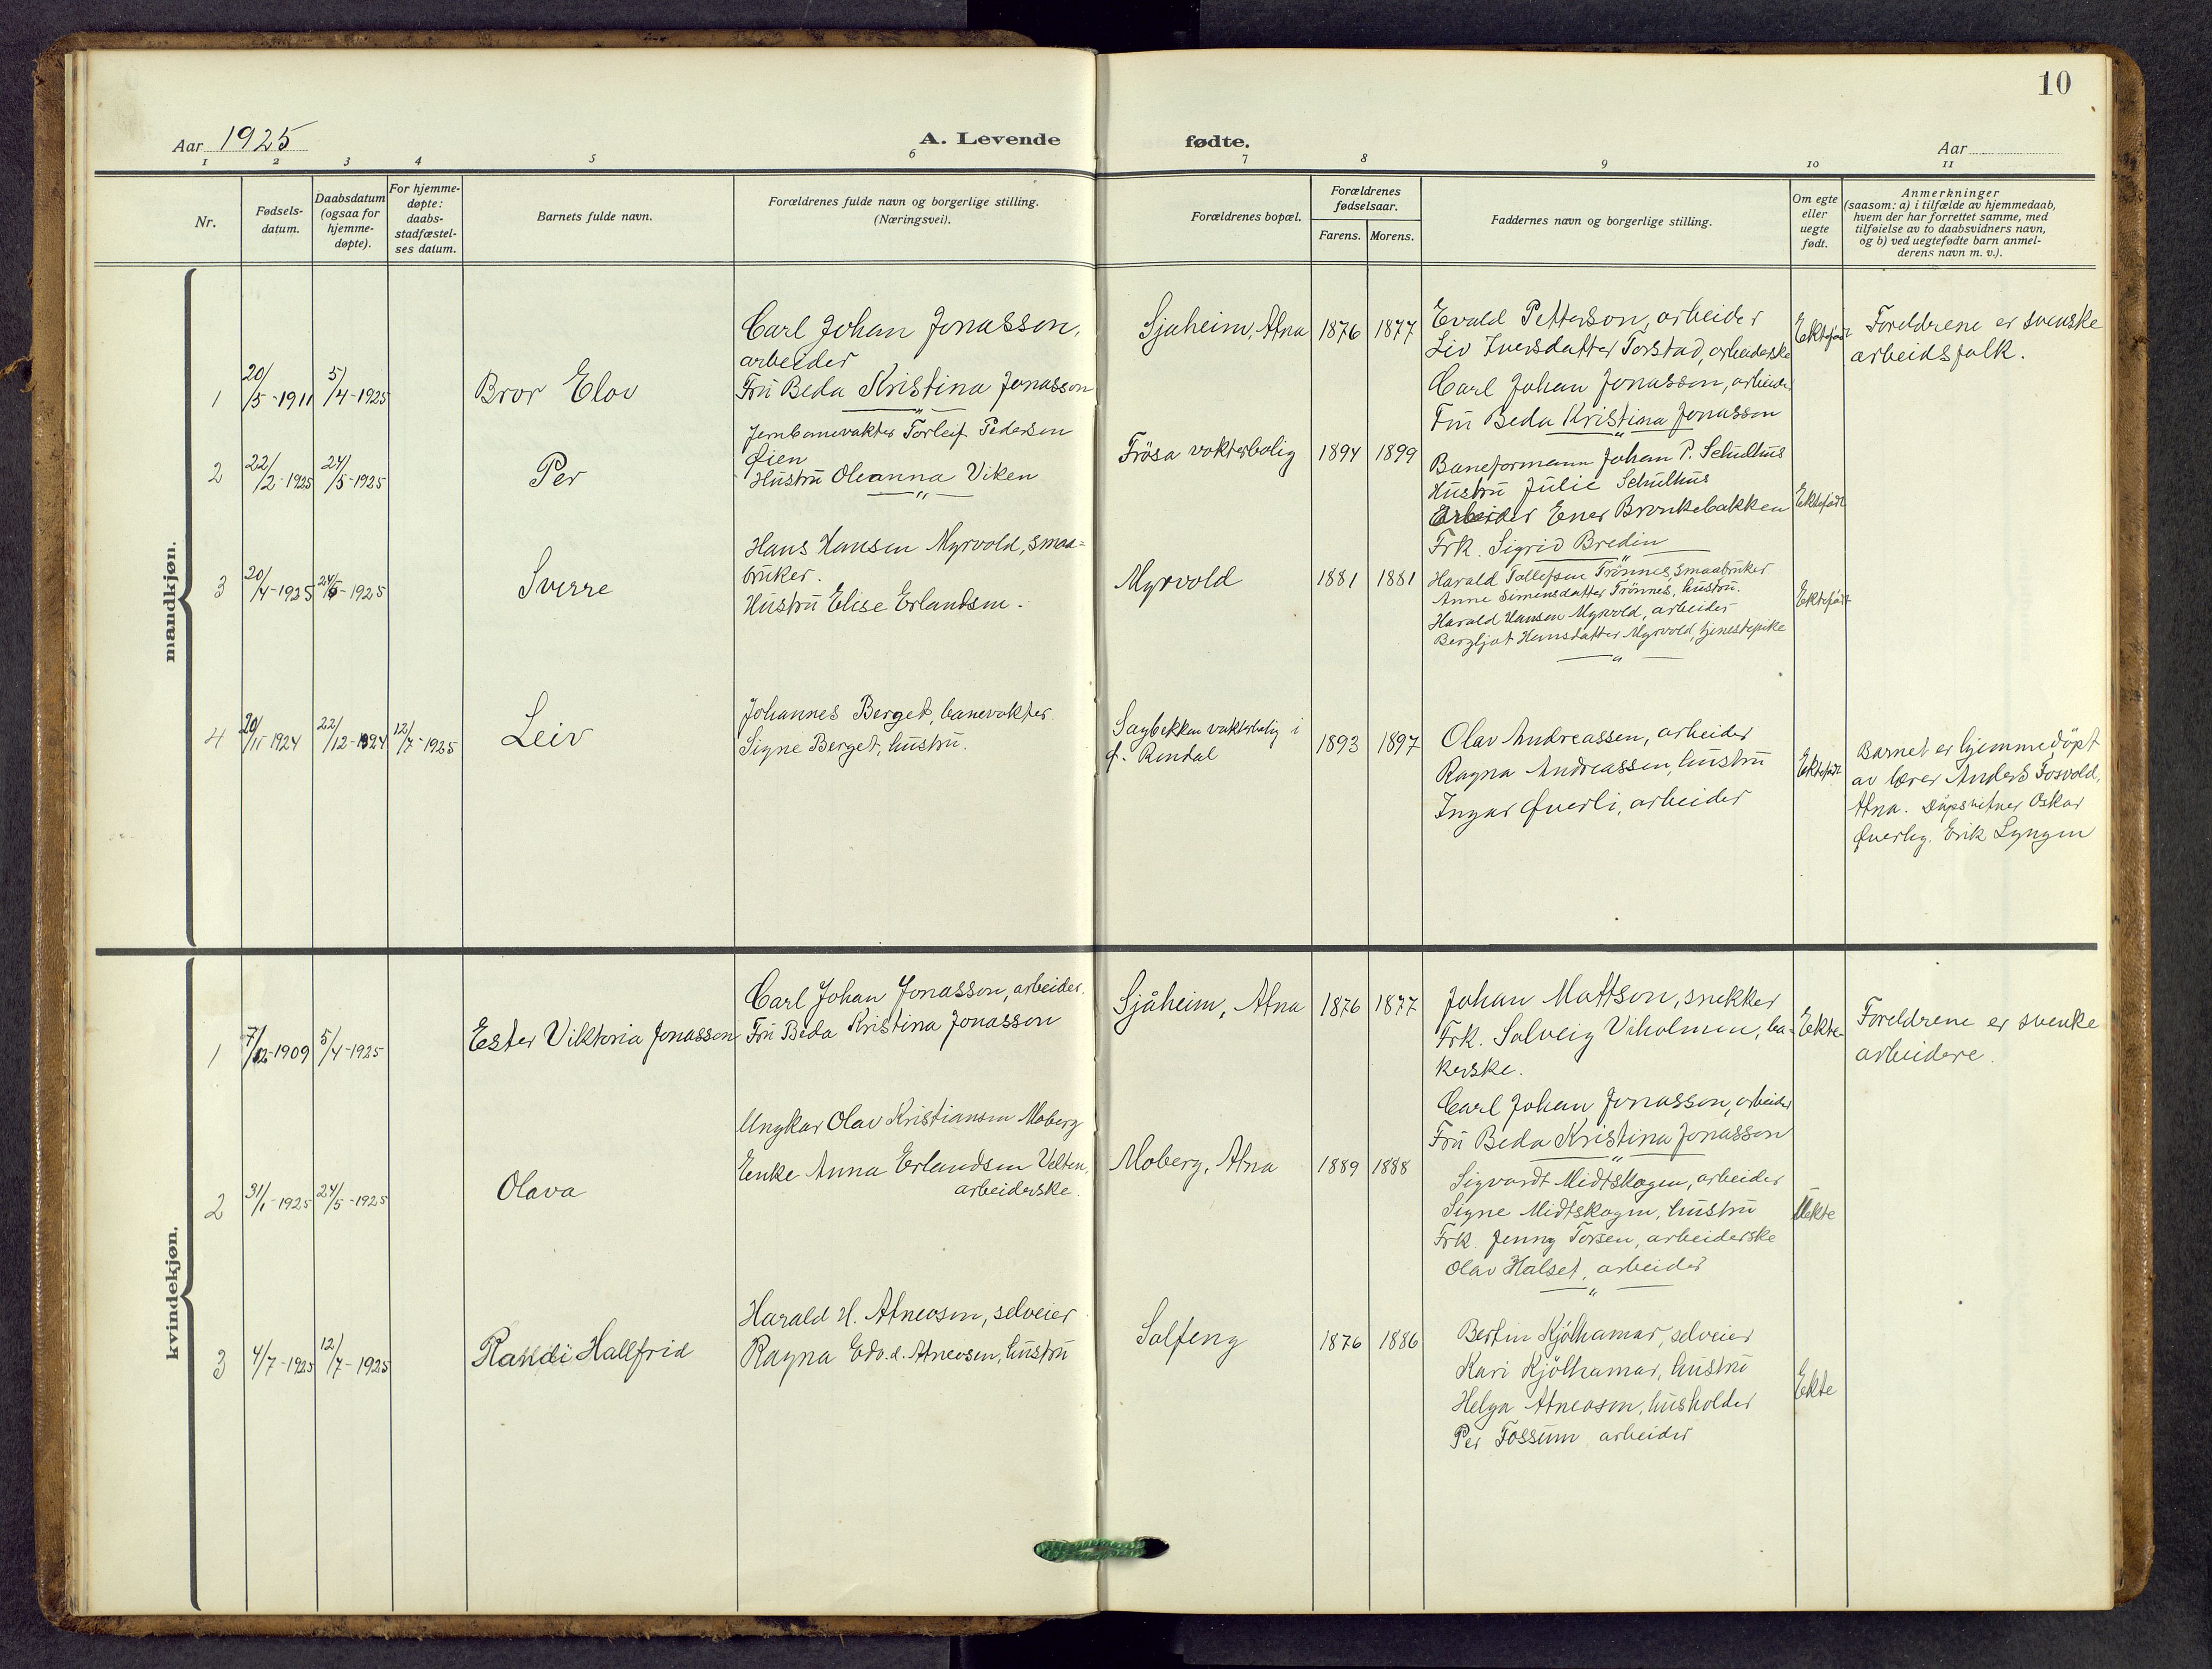 10
Aar 1925
A. Levende fødte.
Aar
1 2 3 4 5 6 7 8 9 10 11
Nr.
Fødsels-
datum.
Daabsdatum
(ogsaa for
hjemme-
døpte).
For hjemme-
døpte:
daabs-
stadfæstel-
ses datum.
Barnets fulde navn.
Forældrenes fulde navn og borgerlige stilling.
(Næringsvei).
Forældrenes bopæl.
Forældrenes
fødselsaar.
Farens. Morens.
Faddernes navn og borgerlige stilling.
Om egte
eller
uegte
født.
Anmerkninger
(saasom: a) i tilfælde av hjemmedaab,
hvem der har forrettet samme, med
tilføielse av to daabsvidners navn,
og b) ved uegtefødte barn anmel-
derens navn m. v.).
mandkjøn.
1
20/5-1911
5/4-1925
Bror Elov
Carl Johan Jonasson,
arbeider
Frü Beda Kristina Jonasson
Sjaheim, Atna
1876 1877
Evald Petterson, arbeider
Liv Iversdatter Torstad, arbeiderske
Carl Johan Jonasson, arbeider
Frü Beda Kristina Jonasson
Ektefødt
Foreldrene er svenske
arbeidsfolk.
2
22/2-1925
24/5-1925
Per
Jernbanevakter Torleif Pedersen
Øien
Hüstrü Oleanna Viken
Frösa vokterbolig
1894 1899
Baneformann Johan P. Schulhüs
Hüstrü Jülie Schülhüs
Arbeider Ener Bronkebakken
Frk. Sigrid Bredin
Ektefødt
3
20/4-1925
24/5-1925
Sverre
Hans Hansen Myrvold, smaa-
brüker.
Hüstrü Elise Erlandsen.
Myrvold
1881 1881
Harald Tollefsen Trönnes, smaabrüker
Anne Simensdatter Trönnes, hüstrü.
Harald Hansen Myrvold, arbeider
Bergljot Hansdatter Myrvold, tjenestepike
Ektefødt
4
20/11-1924
22/12-1924
12/7-1925
Leiv
Johannes Berget, banevokter.
Signe Berget, hüstrü.
Sagbekken vokterbolig i
Ø. Rendal
1893 1897
Olav Andreassen, arbeider
Ragna Andreassen, hüstrü
Ingar Øverli, arbeider
Ektefødt
Barnet er hjemmedöpt
av lærer Anders Fosvold,
Atna. Dåpsvitner Oskar
Øverby. Erik Lyngen
kvindekjøn.
1
7/12-1909
5/4-1925
Ester Viktoria Jonasson
Carl Johan Jonasson, arbeider.
Frü Beda Kristina Jonasson
Sjåheim, Atna
1876 1877
Johan Mattson, snekker
Frk. Solveig Viholmen, ba-
kerske.
Carl Johan Jonasson, arbeider
Frü Beda Kristina Jonasson
Ekte-
Foreldrene er svenke
arbeidere.
2
31/1-1925
24/5-1925
Olava
Ungkar Olav Kristiansen Moberg
Enke Anna Erlandsen Velten,
arbeiderske.
Moberg, Atna
1889 1888
Sigvardt Midtskogen, arbeider
Signe Midtskogen, hüstrü
Frk. Jenny Torsen, arbeiderske
Olav Halset, arbeider
Uekte
3
4/7-1925
12/7-1925
Randi Hallfrid
Harald H. Atneosen, selveier
Ragna Edv.d. Atneosen, hüstrü
Solfeng
1876 1886
Bertin Kjölhamar, selveier
Kari Kjölhamar, hüstrü
Helga Atneosen, hüsholder
Per Fossüm arbeider
Ekte